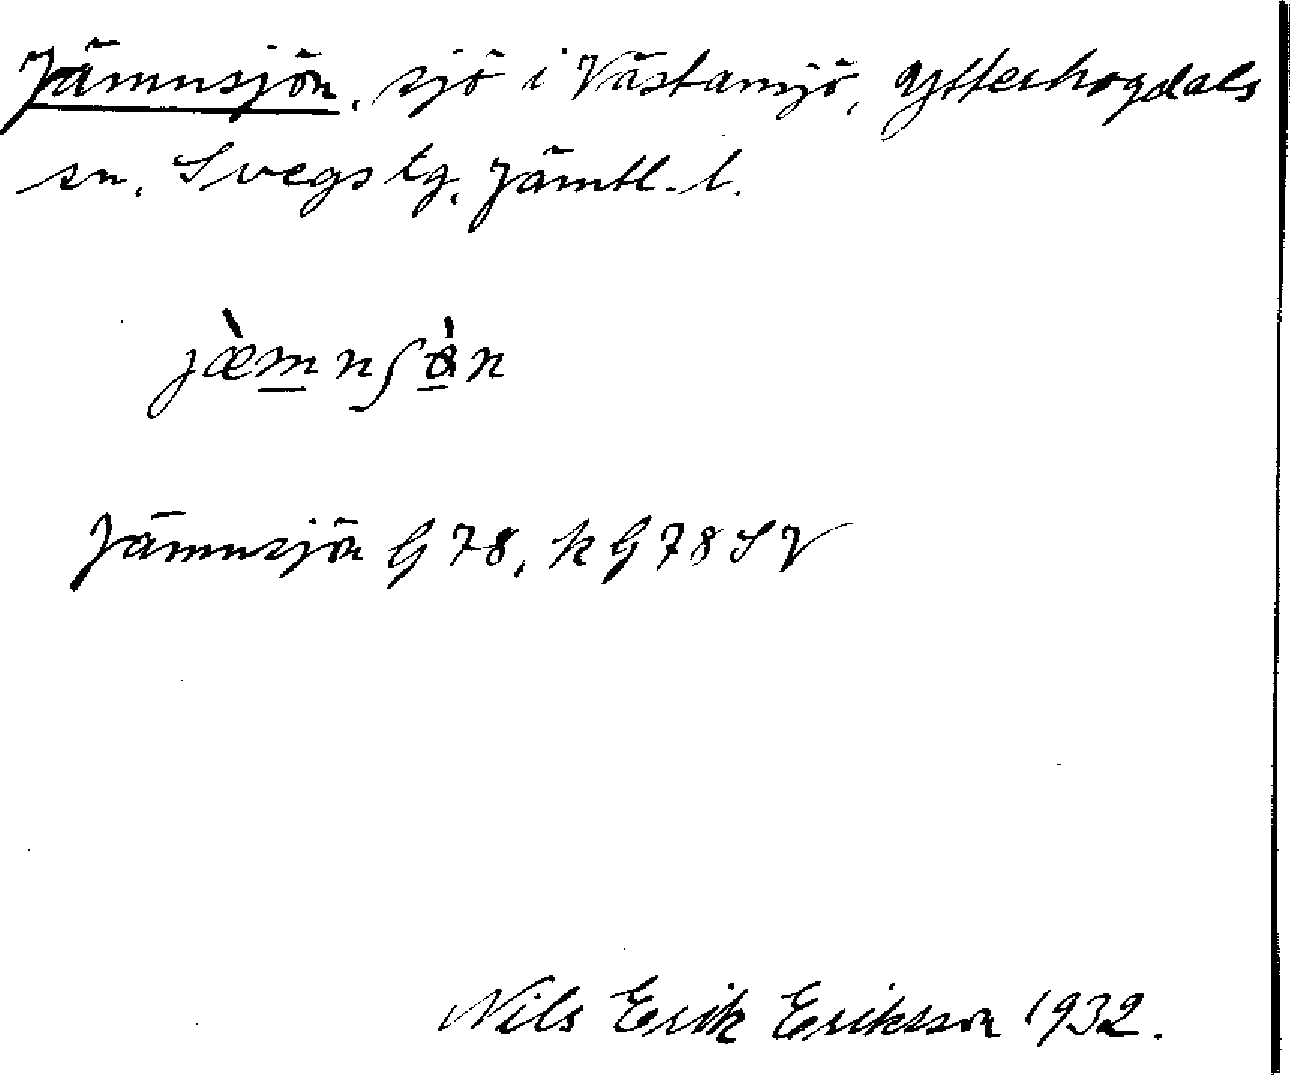 Jämnsjön, sjö i Västansjö, Ytterhogdals
sn, Svegs tg, Jämtl. l.
jæ̀m̲nʃø̲̀n
Jämnsjön G 78, k G 78 S V
Nils Erik Eriksson 1932.